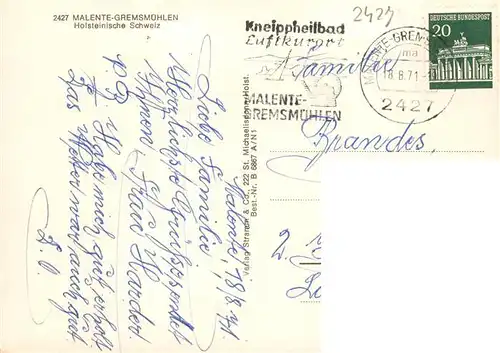 2427 MALENTE-GREMSMÜHLEN
Holsteinische Schweiz
Malente, 18/8. 71.
Liebe Familie
Herzlichste Grüße sendet
Ihnen Frau Harder.
P.S. Habe mich gut erholt
Das Wetter war auch gut.
D. O.
Verlag Straranz & Co., 222 St. Michaelisdonn/Holst.
Best.-Nr. B 6867 A/N1
2427
Kneippheilbad
Luftkurort
MALENTE-
GREMSMÜHLEN
MALENTE-GREMS
ma
18.8.71
2427
DEUTSCHE BUNDESPOST
20
Familie
Brandes,
2.